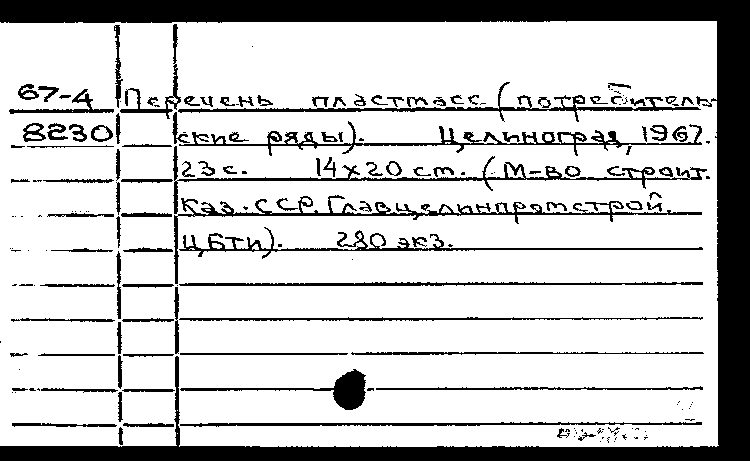 67-4 Перечень пластмасс (потребитель-
8230 ские ряды). Целиноград, 1967.
23 с. 14x20 cm. (М-во строит.
Каз. ССР. Главцелинпромстрой.
ЦБТИ). 280 экз.